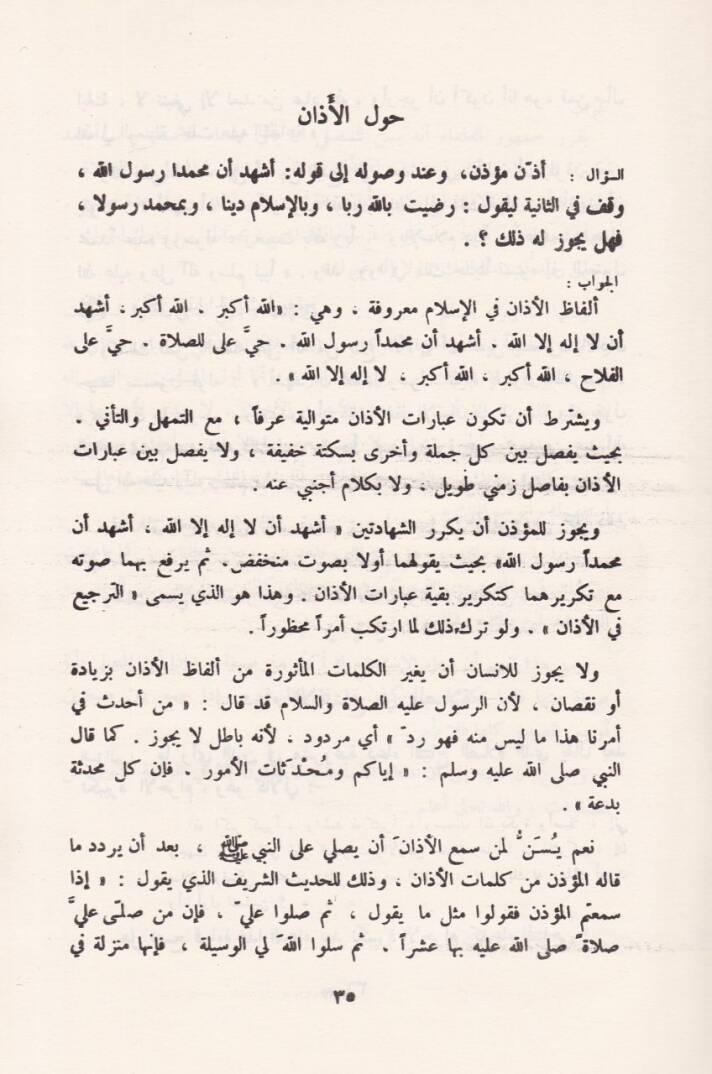 حول الأَذان
السؤال : أذّن مؤذن، وعند وصوله إلى قوله: أشهد أن محمدا رسول الله ،
وقف في الثانية ليقول : رضيت بالله ربا ، وبالإسلام دينا ، وبمحمد رسولا ،
فهل يجوز له ذلك ؟ .
الجواب :
ألفاظ الأذان في الإسلام معروفة ، وهي : «الله أكبر . الله أكبر، أشهد
أن لا إله إلا الله . أشهد أن محمداً رسول الله . حيَّ على للصلاة . حيَّ على
الفلاح ، الله أكبر ، الله أكبر ، لا إله إلا الله » .
ويشترط أن تكون عبارات الأذان متوالية عرفاً ، مع التمهل والتأني .
بحيث يفصل بين كل جملة وأخرى بسكتة خفيفة ، ولا يفصل بين عبارات
الأذان بفاصل زمني طويل ، ولا بكلام أجنبي عنه .
ويجوز للمؤذن أن يكرر الشهادتين « أشهد أن لا إله إلا الله ، أشهد أن
محمداً رسول الله» بحيث يقولهما أولا بصوت منخفض. ثم يرفع بهما صوته
مع تكريرهما كتكرير بقية عبارات الأذان . وهذا هو الذي يسمى « الترجيع
في الأذان » . ولو ترك ذلك لما ارتكب أمراً محظوراً .
ولا يجوز للانسان أن يغير الكلمات المأثورة من ألفاظ الأذان بزيادة
أو نقصان ، لأن الرسول عليه الصلاة والسلام قد قال : « من أحدث في
أمرنا هذا ما ليس منه فهو ردّ » أي مردود ، لأنه باطل لا يجوز . كما قال
النبي صلى الله عليه وسلم : « إياكم ومُحْدَثات الأمور . فإن كل محدثة
بدعة » .
نعم يُسَنُّ لمن سمع الأذانَ أن يصلي على النبي ﷺ ، بعد أن يردد ما
قاله المؤذن من كلمات الأذان ، وذلك للحديث الشريف الذي يقول : « إذا
سمعتم المؤذن فقولوا مثل ما يقول ، ثم صلوا عليّ ، فإن من صلّى عليَّ
صلاةً صلى الله عليه بها عشراً . ثم سلوا اللهَ لي الوسيلة ، فإنها منزلة في
٣٥